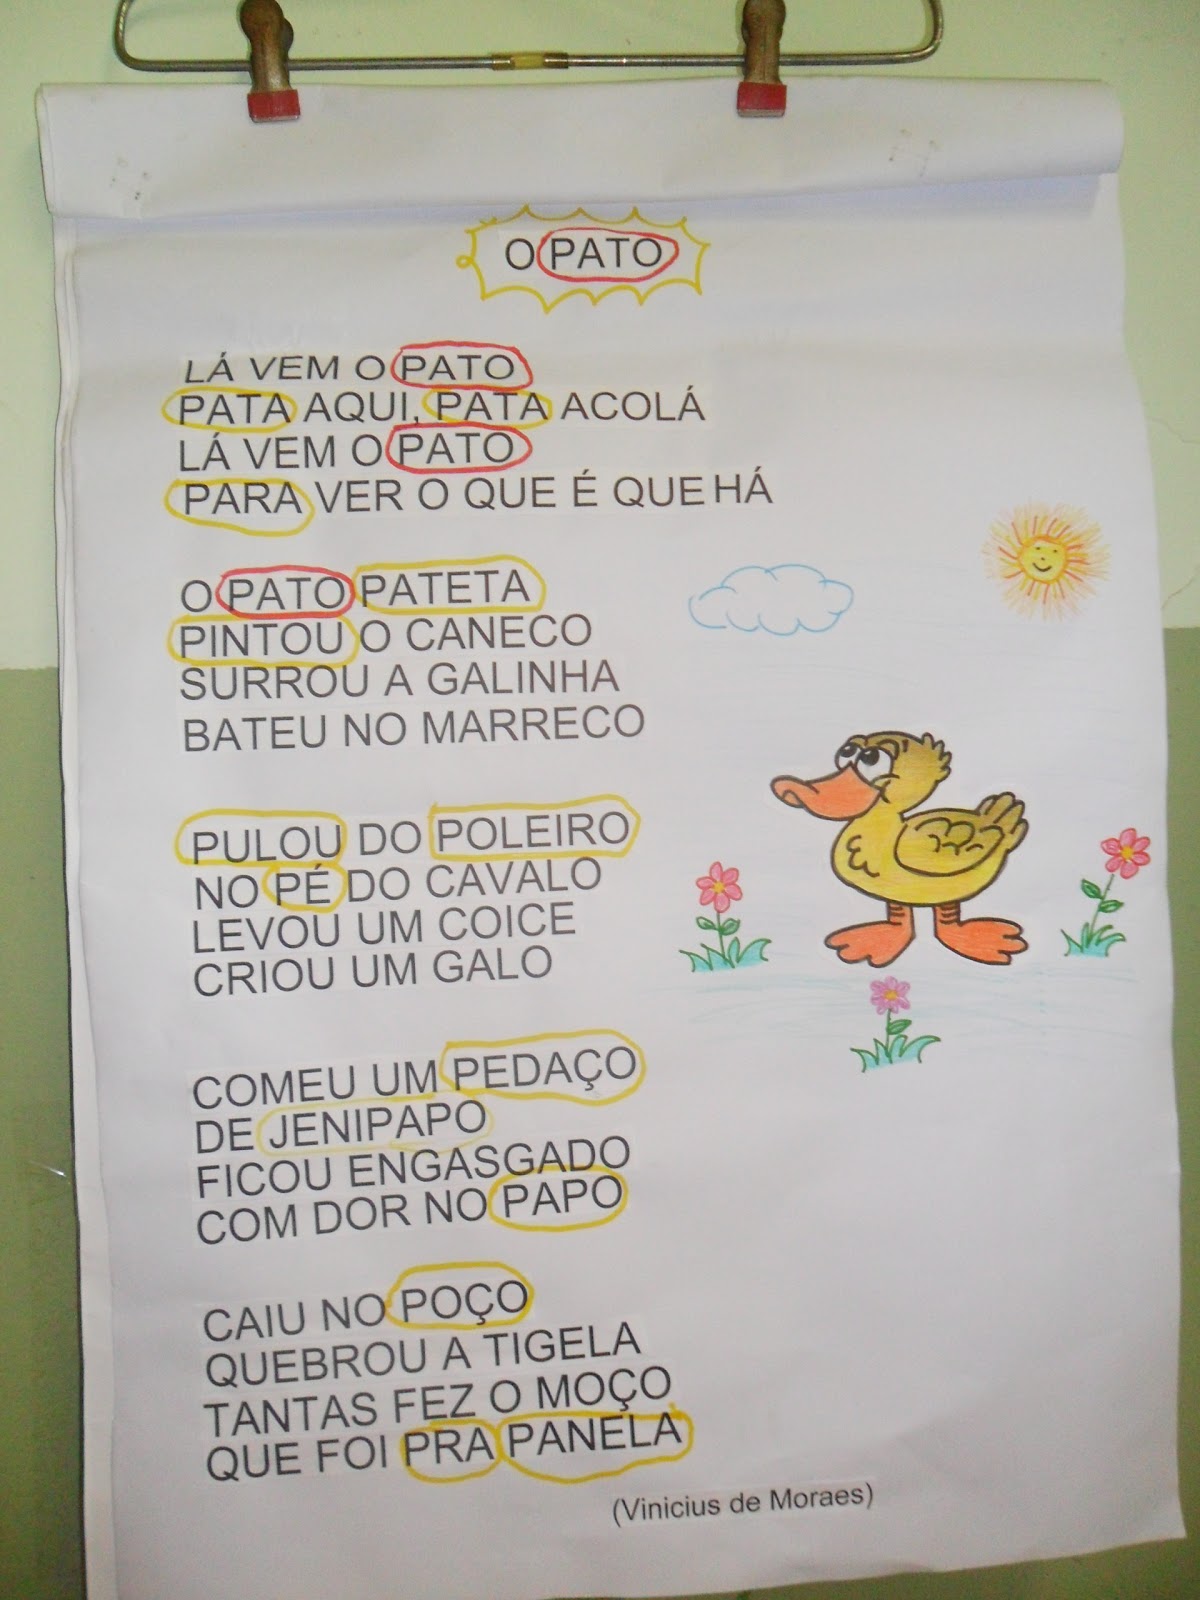 O PATO
LÁ VEM O PATO
PATA AQUI, PATA ACOLÁ
LÁ VEM O PATO
PARA VER O QUE É QUE HÁ
O PATO PATETA
PINTOU O CANECO
SURROU A GALINHA
BATEU NO MARRECO
PULOU DO POLEIRO
NO PÉ DO CAVALO
LEVOU UM COICE
CRIOU UM GALO
COMEU UM PEDAÇO
DE JENIPAPO
FICOU ENGASGADO
COM DOR NO PAPO
CAIU NO POÇO
QUEBROU A TIGELA
TANTAS FEZ O MOÇO
QUE FOI PRA PANELA
(Vinicius de Moraes)